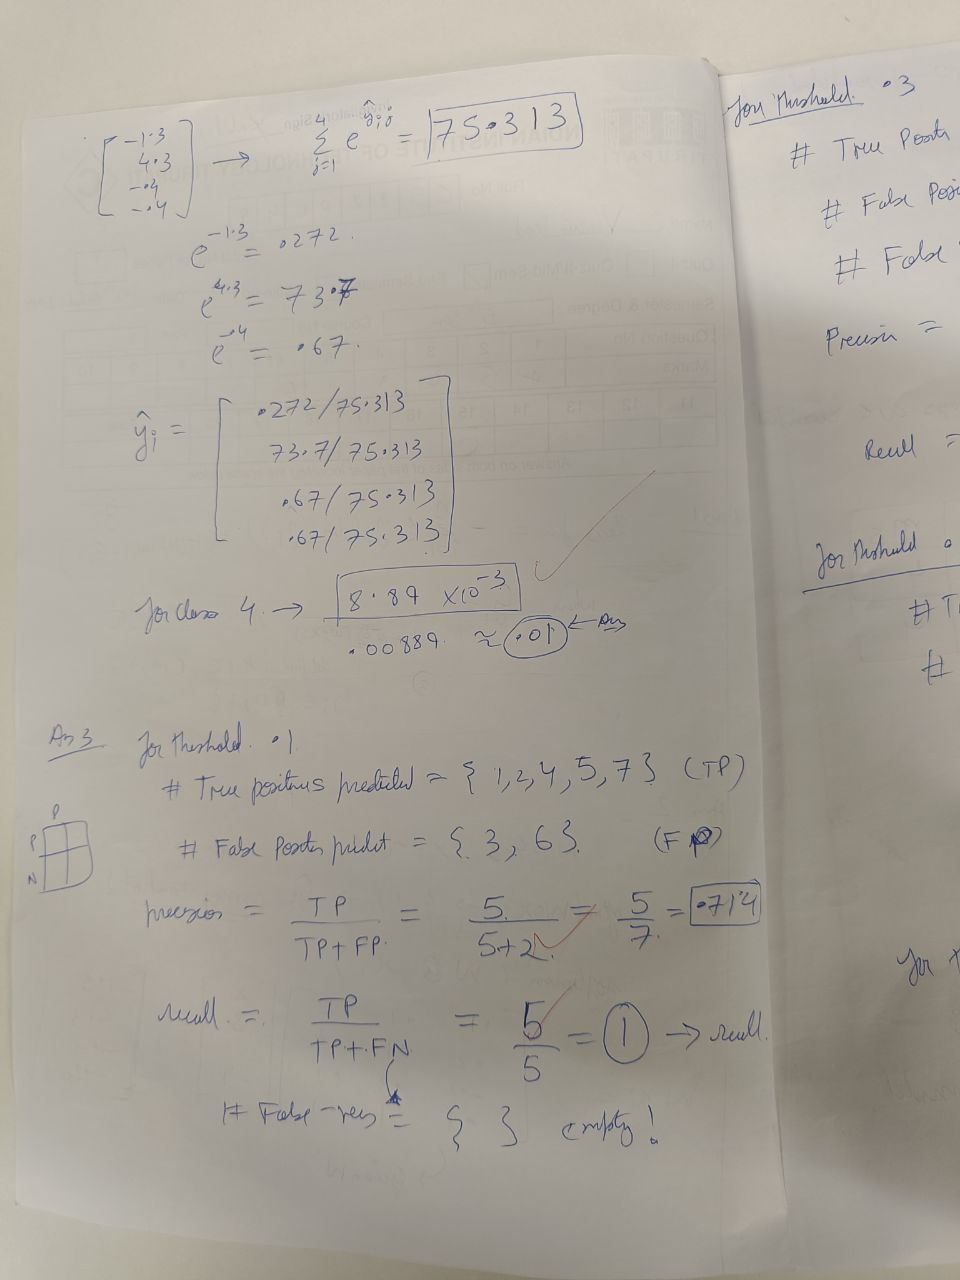 [ -1.3
4.3
-.4
-.4 ] → 4 Σ j=1 e^ŷi,j = 75.313
e^-1.3 = .272.
e^4.3 = 73.7
e^-.4 = .67.
ŷi = [ .272/75.313
73.7/75.313
.67/75.313
.67/75.313 ]
for class 4. → 8.89 × 10^-3
.00889. ≈ .01 ← Ans
Ans 3 for threshold. .1
# True positives predicted = { 1,2,4,5,7 } (TP)
# False Positives predict = { 3, 6 } (FP)
P
P
N
precision = TP / TP + FP. = 5. / 5+2. = 5 / 7. = .714
recall. = TP / TP + FN = 5 / 5 = 1 → recall.
# False -ves = { } empty!
for threshold. .3
# True Positi
# False Posi
# False
Precision =
Recall =
for threshold .
# T
#
for t